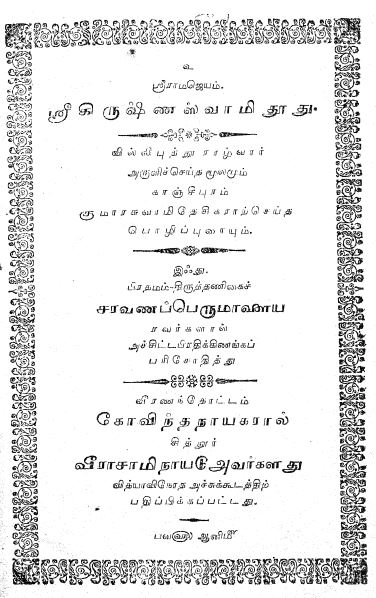 உ
ஸ்ரீராமஜெயம்.
ஸ்ரீகிருஷ்ணஸ்வாமிதூது.
வில்லிபுத்தூராழ்வார்
அருளிச்செய்தமூலமும்
காஞ்சிபுரம்
குமாரசுவாமிதேசிகராற்செய்த
பொழிப்புரையும்.
இஃது.
பிரதமம்-திருத்தணிகைச்
சரவணப்பெருமாளைய
ரவர்களால்
அச்சிட்டபிரதிக்கிணங்கப்
பரிசோதித்து
வீரணந்தோட்டம்
கோவிந்தநாயகரால்
சித்தூர்
வீராசாமிநாயகரவர்களது
வித்யாவிநோத அச்சுக்கூடத்திற்
பதிப்பிக்கப்பட்டது.
ஆனிமீ